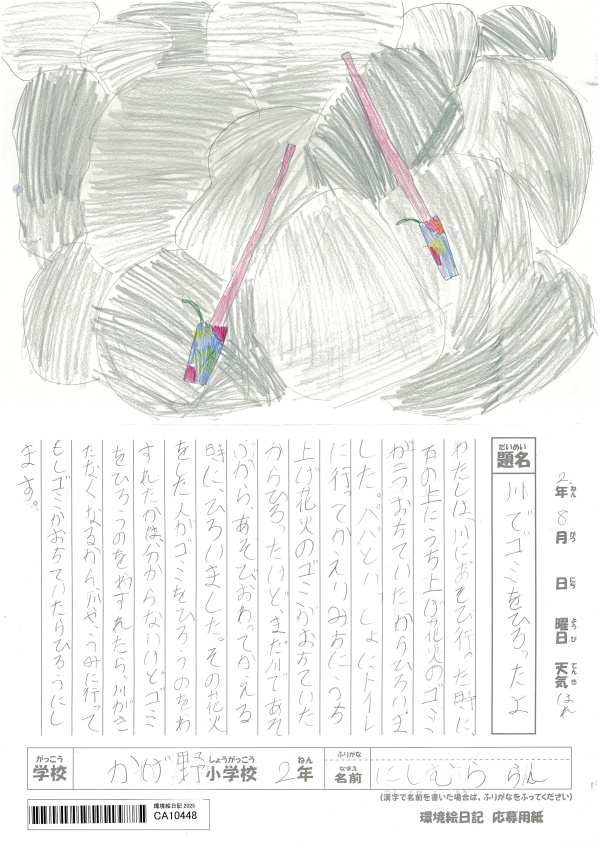 2年 8月 日 曜日 天気 はれ
題名 川でゴミをひろったよ
わたしは、川におそび行った時に、
石の上にうち上げ花火のゴミ
が二つおちていたからひろいま
した。パパといっしょにトイレ
に行ってかえりみちにうち
上げ花火のゴミがおちていた
からひろったけど、まだ川であそ
ぶから、あそびおわってかえる
時に、ひろいました。その花火
をした人がゴミをひろうのをわ
すれたかは、分からないけどゴミ
をひろうのをわすれたら、川がき
たなくなるから、川や、うみに行って
もしゴミがおちていたらひろうにし
ます。
学校 かげ野小学校 2年 名前 にしむら らん
(漢字で名前を書いた場合は、ふりがなをふってください)
環境絵日記 2025
CA10448
環境絵日記 応募用紙